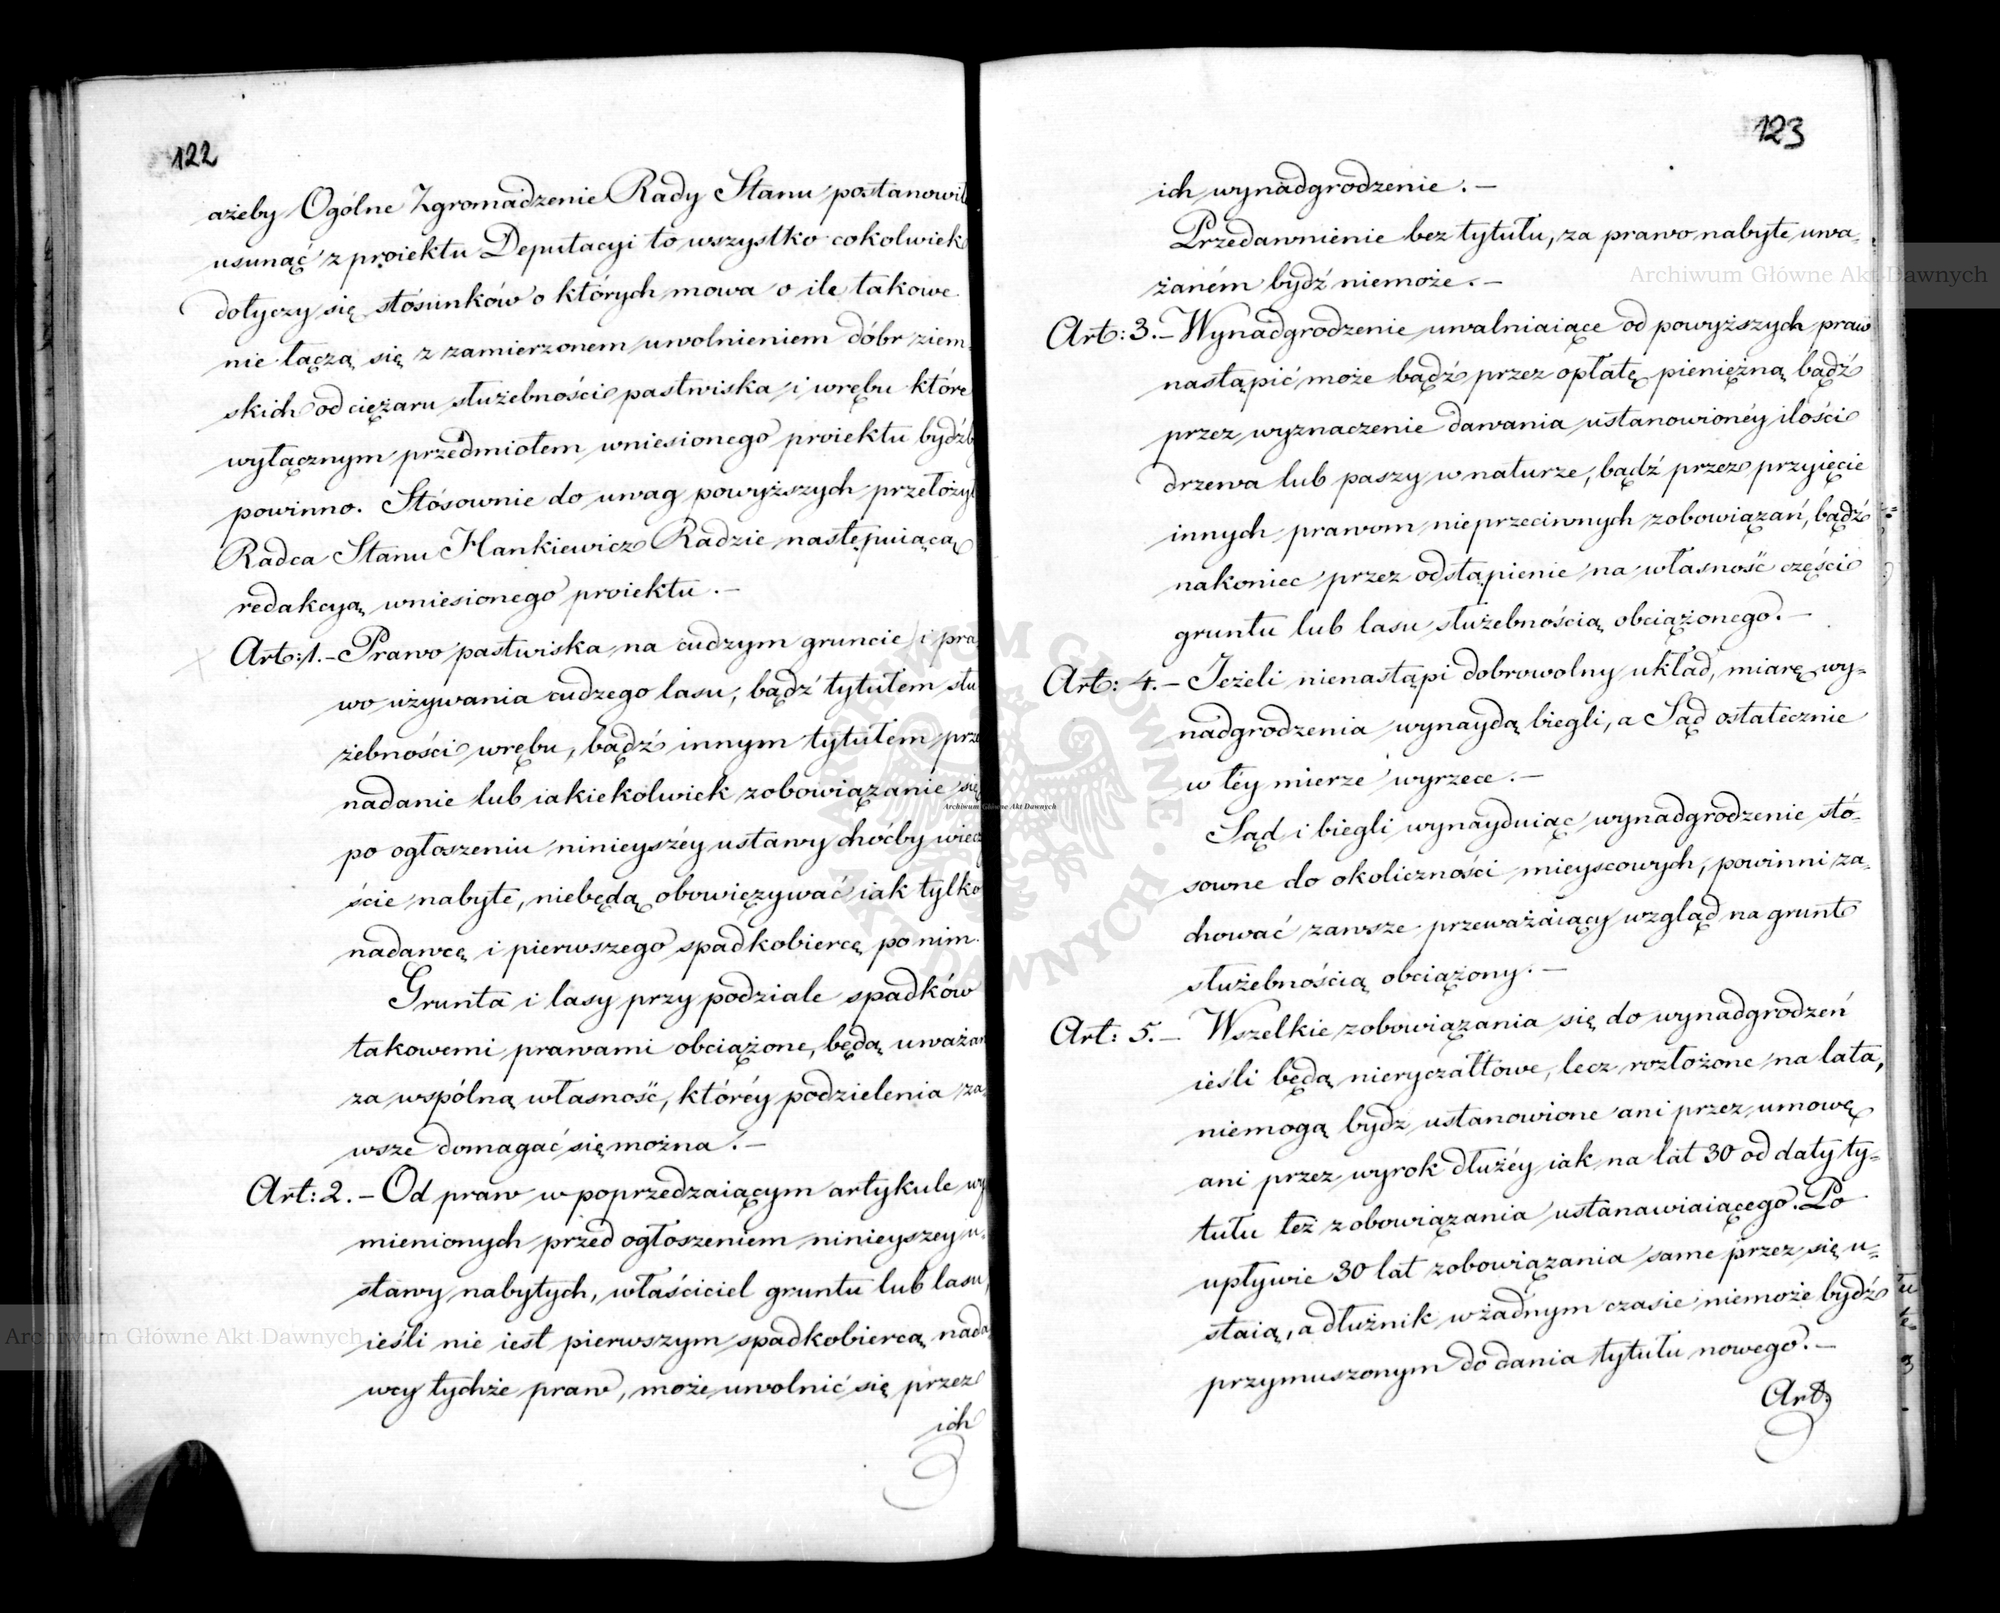 122
ażeby Ogólne Zgromadzenie Rady Stanu postanowił
usunąć z proiektu Deputacyi to wszystko cokolwiek
dotyczy się stósunków o których mowa o ile takowe
nie łączą się z zamierzonem uwolnieniem dóbr ziem-
skich od ciężaru służebności pastwiska i wrębu które
wyłącznym przedmiotem wniesionego proiektu bydźb
powinno. Stósownie do uwag powyższych przełożył
Radca Stanu Hankiewicz Radzie następuiącą
redakcyą wniesionego proiektu. —
Art: 1. — Prawo pastwiska na cudzym gruncie i pra
wo używania cudzego lasu, bądź tytułem słu
żebności wrębu, bądź innym tytułem prze
nadanie lub iakiekolwiek zobowiązanie się
po ogłoszeniu ninieyszéy ustawy choćby wiecz
ście nabyte, niebędą obowięzywać iak tylko
nadawcę i pierwszego spadkobiercę po nim.
Grunta i lasy przy podziale spadków
takowemi prawami obciążone, będą uważan
za wspólną własność, któréy podzielenia za-
wsze domagać się można. —
Art: 2. — Od praw w poprzedzaiącym artykule wy
mienionych przed ogłoszeniem ninieyszey u-
stawy nabytych, właściciel gruntu lub lasu,
ieśli nie iest pierwszym spadkobiercą nada
wcy tychże praw, może uwolnić się przez
ich
123
ich wynadgrodzenie. —
Przedawnienie bez tytułu, za prawo nabyte uwa-
żaném bydź niemoże. —
Art: 3. — Wynadgrodzenie uwalniaiące od powyższych praw
nastąpić może bądź przez opłatę pieniężną bądź
przez wyznaczenie dawania ustanowionéy ilości
drzewa lub paszy w naturze, bądź przez przyięcie
innych prawom nieprzeciwnych zobowiązań, bądź
nakoniec przez odstąpienie na własność części
gruntu lub lasu służebnością obciążonego. —
Art: 4. — Jeżeli nienastąpi dobrowolny układ, miarę wy-
nadgrodzenia wynaydą biegli, a Sąd ostatecznie
w téy mierze wyrzece. —
Sąd i biegli wynayduiąc wynadgrodzenie stó-
sowne do okoliczności mieyscowych, powinni za-
chować zawsze przeważaiący wzgląd na grunt
służebnością obciążony. —
Art: 5. — Wszelkie zobowiązania się do wynadgrodzeń
ieśli będą nieryczałtowe, lecz rozłożone na lata,
niemogą bydź ustanowione ani przez umowę
ani przez wyrok dłużéy iak na lat 30 od daty ty-
tułu też zobowiązania ustanawiaiącego. Po
upływie 30 lat zobowiązania same przez się u-
staią, a dłużnik w żadnym czasie niemoże bydź
przymuszonym do dania tytułu nowego. —
Art:
Archiwum Główne Akt Dawnych
Archiwum Główne Akt Dawnych
Archiwum Główne Akt Dawnych
ARCHIWUM GŁÓWNE AKT DAWNYCH